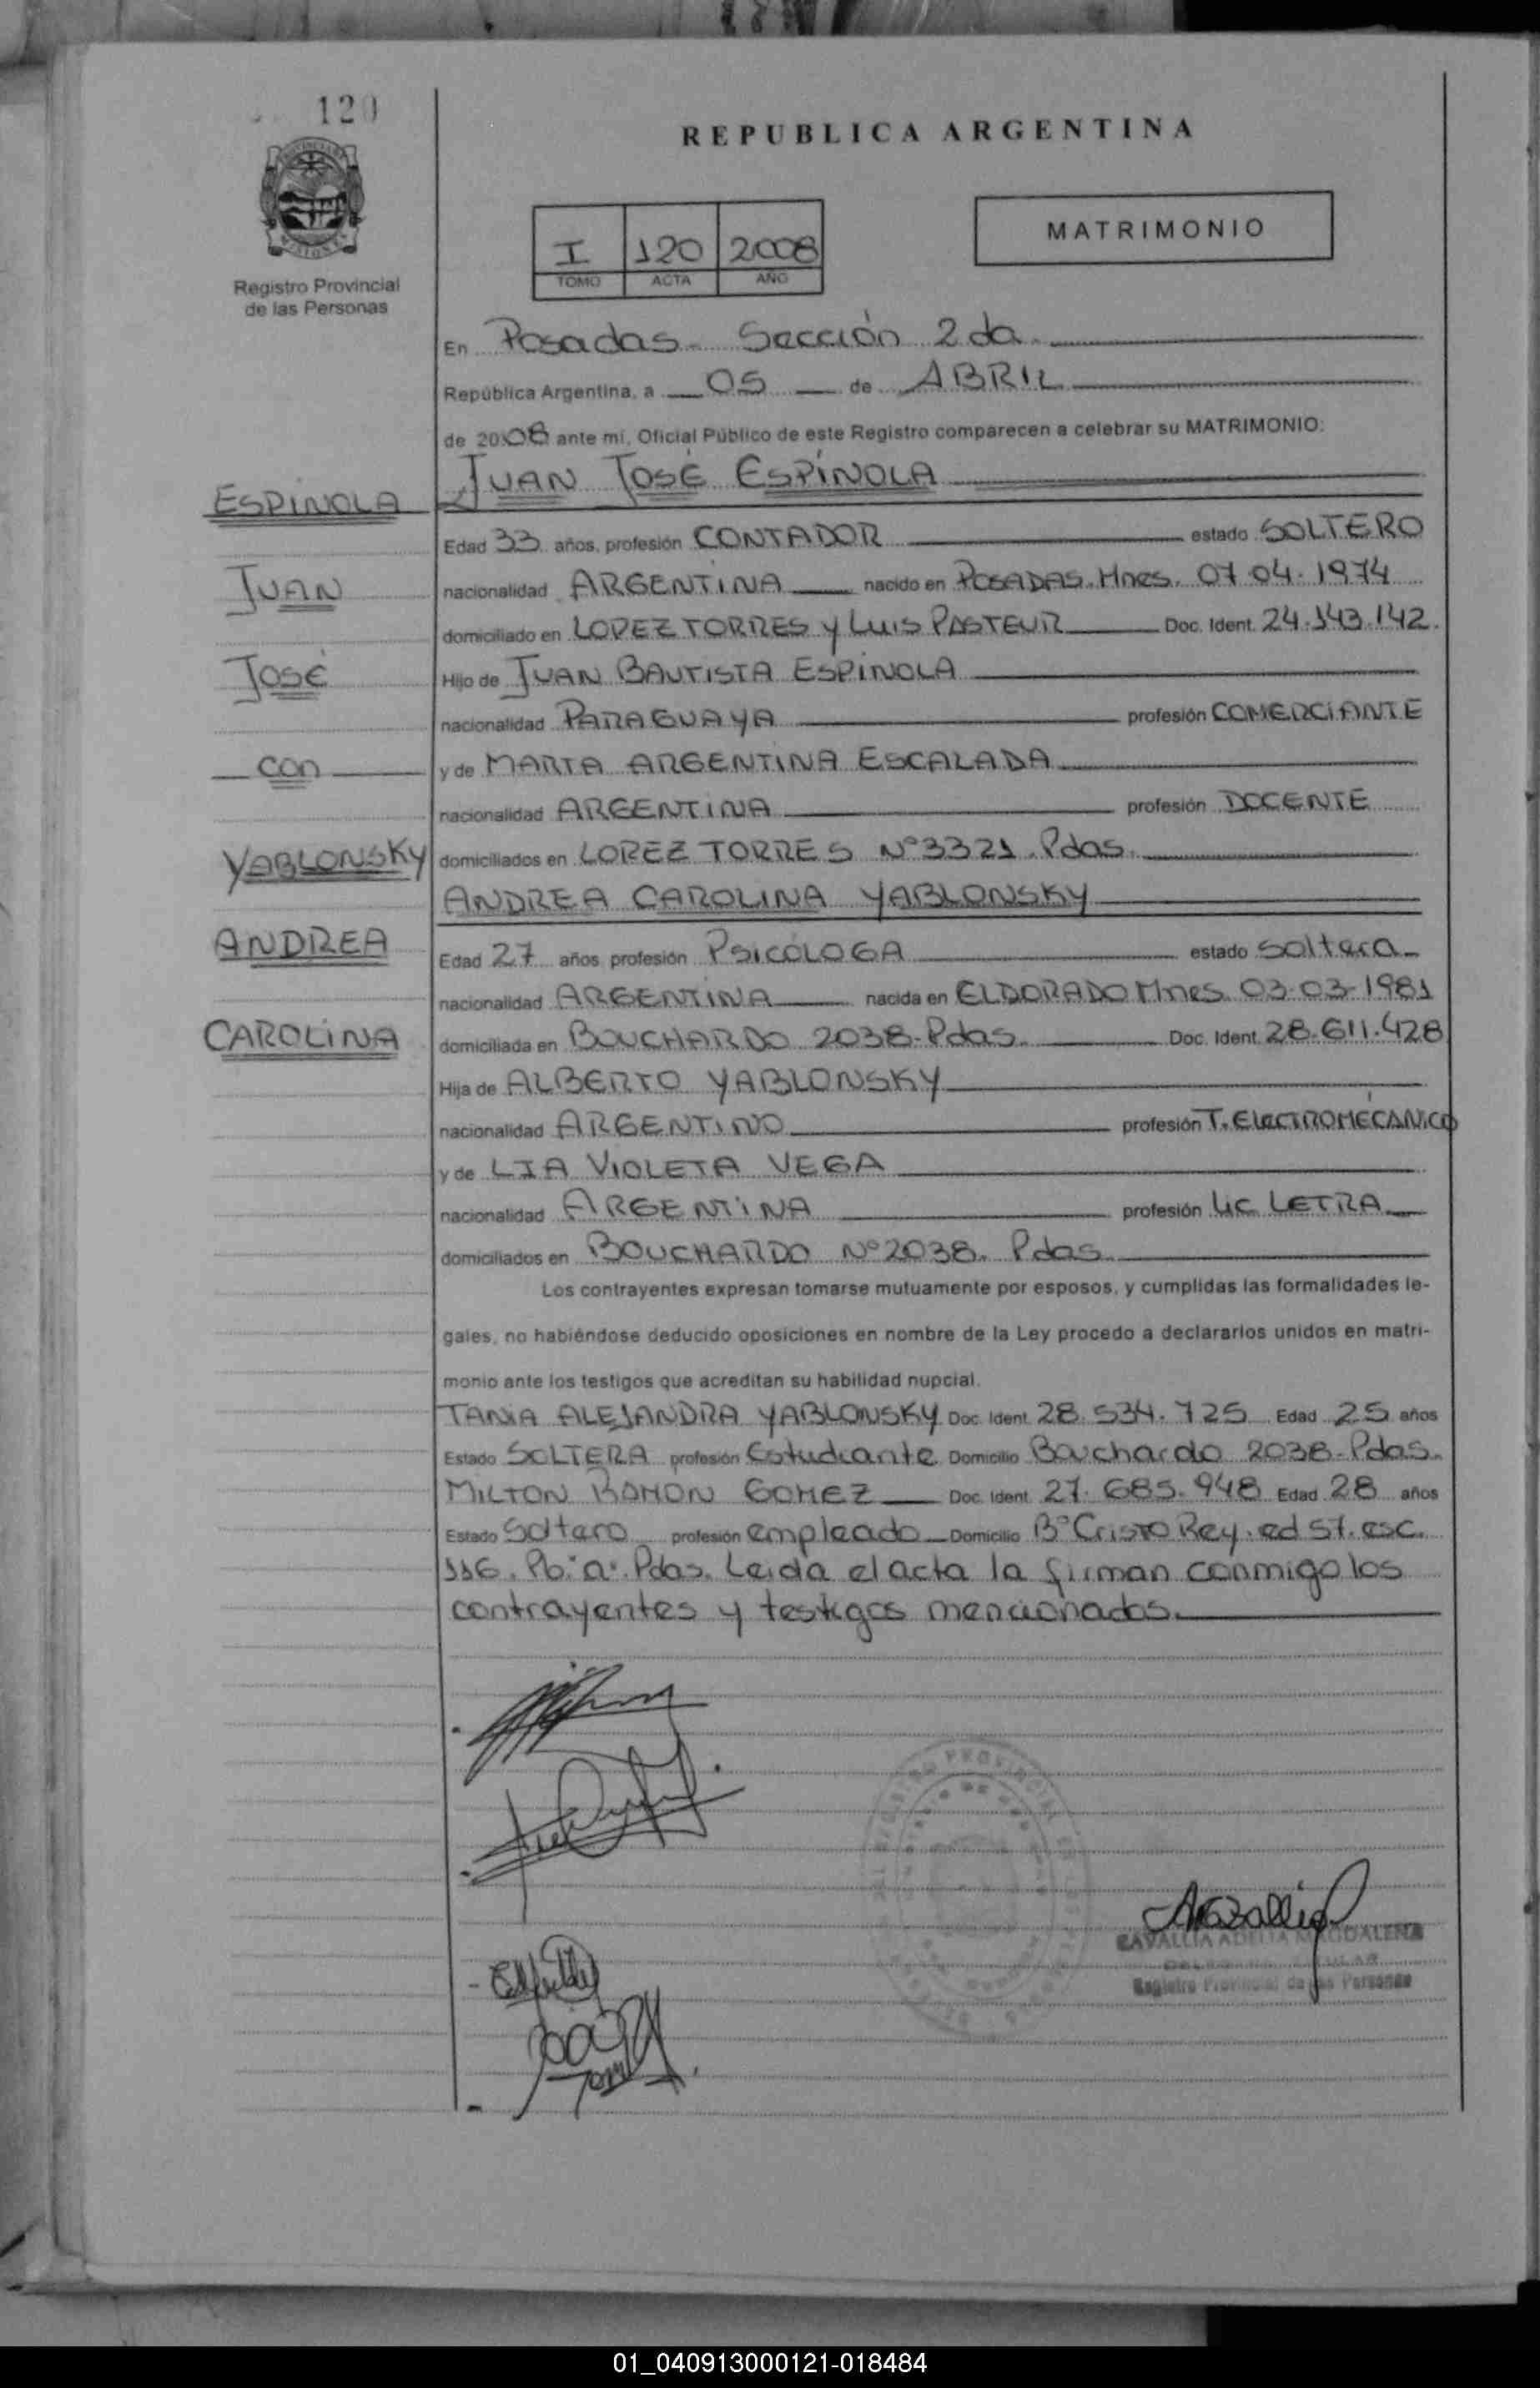 120
REPUBLICA ARGENTINA
MATRIMONIO
I 120 2008
TOMO ACTA AÑO
Registro Provincial
de las Personas
En Posadas - Sección 2da.
República Argentina, a 05 de ABRIL
de 2008 ante mi, Oficial Público de este Registro comparecen a celebrar su MATRIMONIO:
JUAN JOSÉ ESPÍNOLA
ESPINOLA
Edad 33 años, profesión CONTADOR estado SOLTERO
JUAN
nacionalidad ARGENTINA nacido en POSADAS. Mnes. 07-04-1974
domiciliado en LOPEZ TORRES y LUIS PASTEUR Doc. Ident. 24.143.142.
JOSÉ
Hijo de JUAN BAUTISTA ESPINOLA
nacionalidad PARAGUAYA profesión COMERCIANTE
con
y de MARTA ARGENTINA ESCALADA
nacionalidad ARGENTINA profesión DOCENTE
YABLONSKY
domiciliados en LOPEZ TORRES Nº 3321. Pdas.
ANDREA CAROLINA YABLONSKY
ANDREA
Edad 27 años profesión PSICÓLOGA estado soltera
nacionalidad ARGENTINA nacida en ELDORADO Mnes. 03-03-1981
CAROLINA
domiciliada en BOUCHARDO 2038-Pdas. Doc. Ident. 28.611.428
Hija de ALBERTO YABLONSKY
nacionalidad ARGENTINO profesión T. ELECTROMECÁNICO
y de LIA VIOLETA VEGA
nacionalidad ARGENTINA profesión LIC LETRA
domiciliados en BOUCHARDO Nº 2038. Pdas
Los contrayentes expresan tomarse mutuamente por esposos, y cumplidas las formalidades le-
gales, no habiéndose deducido oposiciones en nombre de la Ley procedo a declararlos unidos en matri-
monio ante los testigos que acreditan su habilidad nupcial.
TANIA ALEJANDRA YABLONSKY Doc. Ident. 28.534.725 Edad 25 años
Estado SOLTERA profesión Estudiante Domicilio Bouchardo 2038-Pdas.
MILTON RAMON GOMEZ Doc. Ident. 27.685.948 Edad 28 años
Estado Soltero profesión empleado Domicilio Bº Cristo Rey. ed 57. esc.
116. Pb. "a". Pdas. Leida el acta la firman conmigo los
contrayentes y testigos mencionados.
CAVALLIA ADELIA MAGDALENA
Registro Provincial de las Personas
01_040913000121-018484